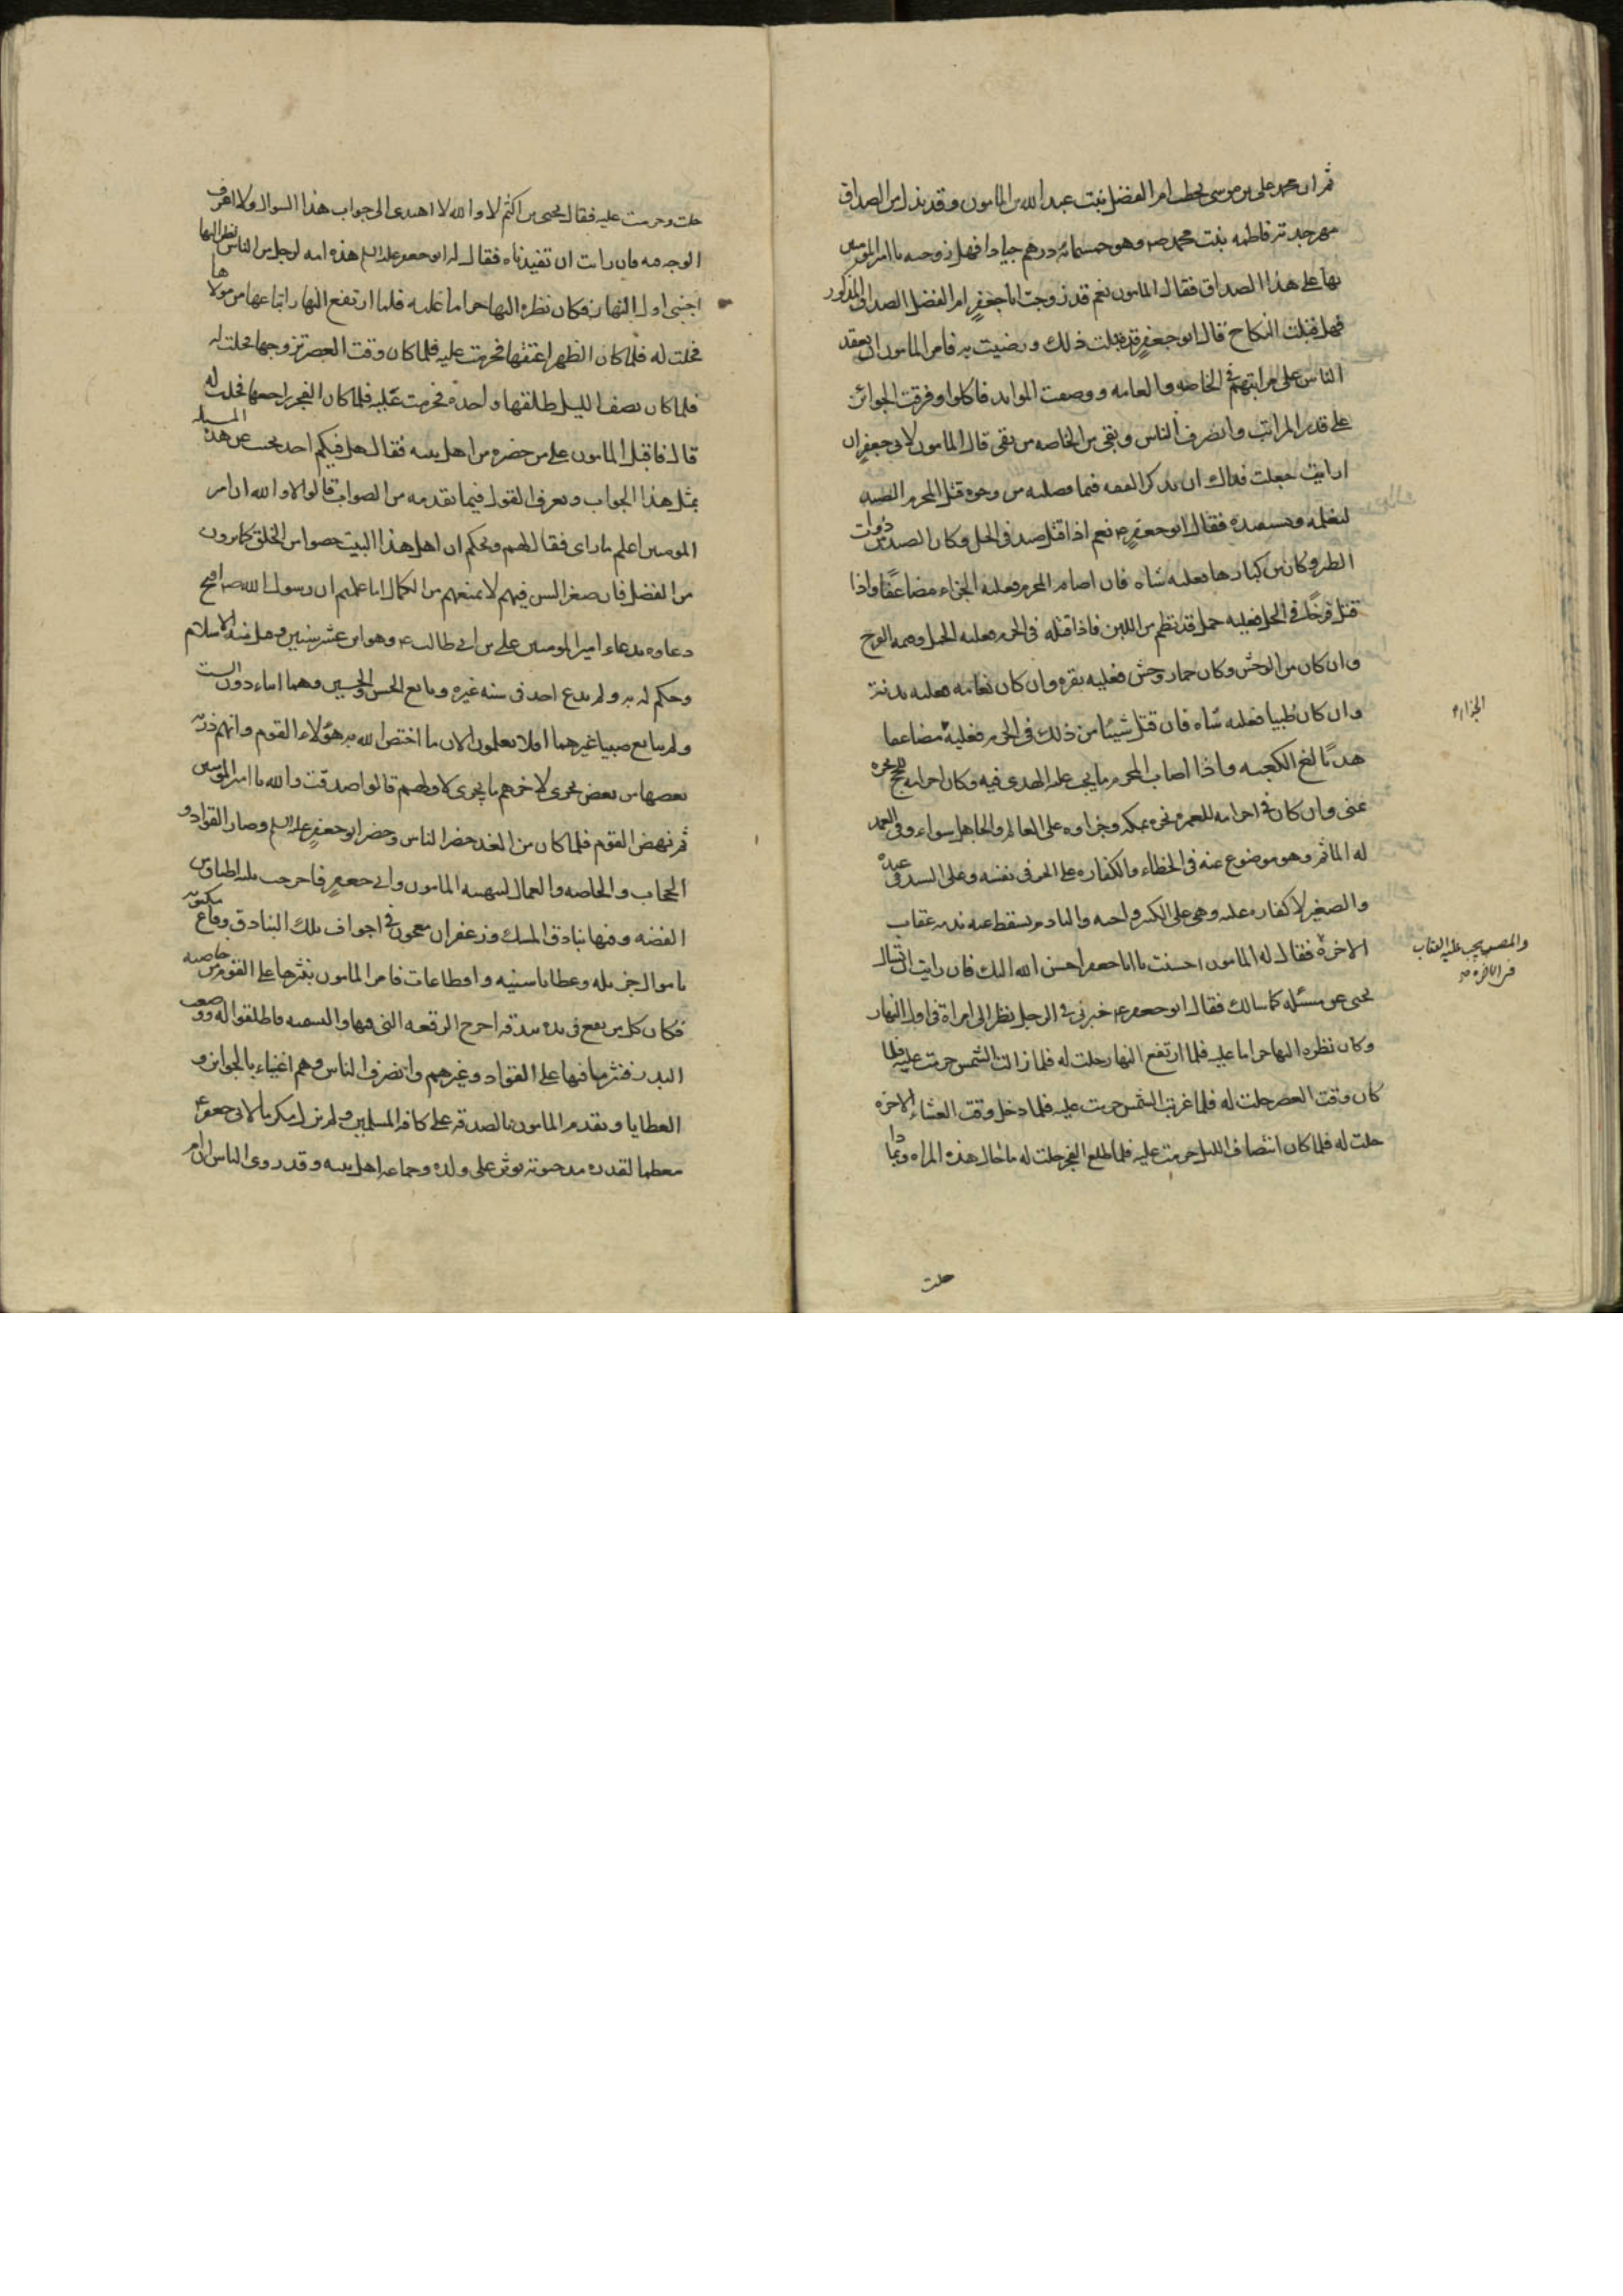 ثم ان محمد على بن موسى يخطب ام الفضل بنت عبد الله بن المامون وقد بذل من الصداق
مهر جدته فاطمه بنت محمد ص وهو خمسمائه درهم جيادا فهل زوجته يا امير المومنين
بها على هذا الصداق فقال المامون نعم قد زوجت ابا جعفر ام الفضل الصداق المذكور
فهل قبلت النكاح قال ابو جعفر قد قبلت ذلك ورضيت به فامر المامون ان يقعد
الناس على مراتبهم فى الخاصه والعامه ووضعت الموايد فاكلوا وفرقت الجوائز
على قدر المراتب وانصرف الناس وبقى من الخاصه من بقى قال المامون لابى جعفر ان
ان رايت جعلت فداك ان تذكر الفقه فيما فصلته من وجوه قتل المحرم الصيد
لنعلمه ونستفيده فقال ابو جعفر ع نعم اذا قتل صيد فى الحل وكان الصيد من ذوات
الطير وكان من كبارها فعليه شاه فان اصابه المحرم فعليه الجزاء مضاعفا واذا
قتل فرخا فى الحل فعليه حمل قد فطم من اللبن فاذا قتله فى الحرم فعليه الحمل وقيمه الفرخ
وان كان من الوحش وكان حمار وحش فعليه بقره وان كان نعامه فعليه بدنة
وان كان ظبيا فعليه شاه فان قتل شيئا من ذلك فى الحرم فعليه مضاعفا
الجزاء
هديا لغ الكعبه واذا اصاب المحرم ما يجب عليه الهدى فيه وكان احرامه للحج نحره
عنى وان كان فى احرامه للعمره نحره بمكه وجزاوه على العالم والجاهل سواء وفى العمد
له الماثم وهو موضوع عنه فى الخطاء والكفاره على الحر فى نفسه وعلى السيد فى عبده
والصغير لا كفاره عليه وهى على الكبير واجبه والنادم يسقط عنه ندمه عقاب
والمصر يجب عليه العقاب
فى الاخره صح
الاخرة فقال له المامون احسنت يا ابا جعفر احسن الله اليك فان رايت ان تسال
يحيى عن مسئله كما سالك فقال ابو جعفر ع خبرنى فى الرجل نظر الى امراة فى اول النهار
وكان نظره اليها حراما عليه فلما ارتفع النهار حلت له فلما زالت الشمس حرمت عليه فلما
كان وقت العصر حلت له فلما غربت الشمس حرمت عليه فلما دخل وقت العشاء الاخره
حلت له فلما كان انتصاف الليل حرمت عليه فلما طلع الفجر حلت له ما حال هذه المراه وبماذا
حلت
حلت وحرمت عليه فقال يحيى بن اكثم لا والله لا اهتدى الى جواب هذا السوال ولا اعرف
الوجه فيه فان رايت ان تفيدناه فقال له ابو جعفر عليه السلم هذه امه لرجل من الناس نظر اليها
اجنبى اول النهار فكان نظره اليها حراما عليه فلما ارتفع النهار ابتاعها من مولاها
فحلت له فلما كان الظهر اعتقها فحرمت عليه فلما كان وقت العصر تزوجها فحلت له
فلما كان نصف الليل طلقها واحدة فحرمت عليه فلما كان الفجر راجعها فحلت له
قال فاقبل المامون على من حضره من اهل بيته فقال هل فيكم احد يجيب عن هذه المسله
بمثل هذا الجواب ويعرف القول فيما تقدمه من الصواب قالوا لا والله ان امير
المومنين اعلم بما راى فقال لهم ويحكم ان اهل هذا البيت خصوا من الخلق بما ترون
من الفضل فان صغر السن فيهم لا يمنعهم من الكمال اما علمتم ان رسول الله ص افتتح
دعاوه بدعاء امير المومنين على بن ابى طالب ع وهو ابن عشر سنين وقبل منه الاسلام
وحكم له به ولم يدع احد فى سنه غيره وبايع الحسن والحسين وهما ابناء دون الست
ولم يبايع صبيا غيرهما افلا تعلمون الان ما اختص الله به هؤلاء القوم وانهم ذريه
بعضها من بعض يجرى لاخرهم ما يجرى لاولهم قالوا صدقت والله يا امير المومنين
ثم نهض القوم فلما كان من الغد حضر الناس وحضر ابو جعفر عليه السلم وصار القواد و
الحجاب والخاصه والعمال لتهنيه المامون وابى جعفر فاخرجت ثلثه اطباق من
الفضه وفيها بنادق المسك وزعفران معجون فى اجواف تلك البنادق رقاع مكتوبه
باموال جزيله وعطايا سنيه واقطاعات فامر المامون بنثرها على القوم من خاصته
فكان كل من يقع فى يده بندقه اخرج الرقعه التى فيها والتمسه فاطلقوا له ووضعت
البدر فنثر ما فيها على القواد وغيرهم وانصرف الناس وهم اغنياء بالجوائز و
العطايا وتقدم المامون بالصدقه على كافة المسلمين ولم يزل مكرما لابى جعفر ع
معظما لقدره مدة حيوته يوثره على ولده وجماعه اهل بيته وقد روى الناس ان ام